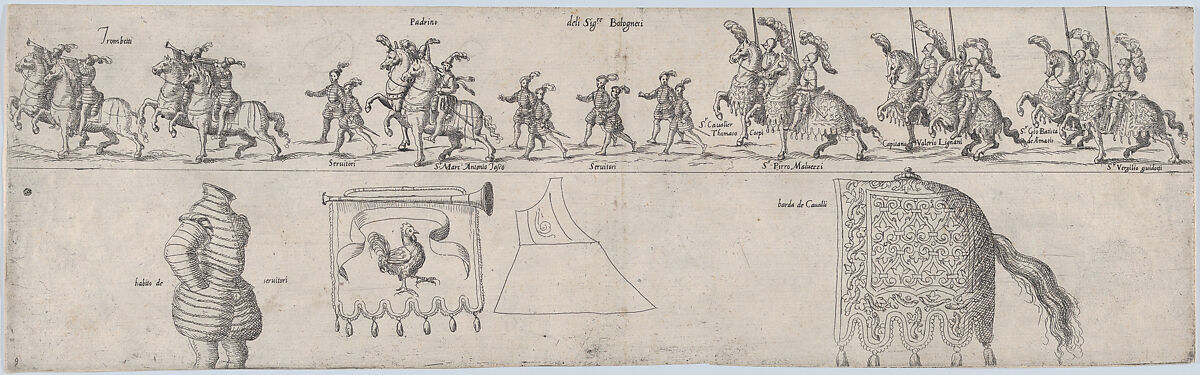 Trombetti
Padrino
deli Sig.re Bolognesi
Seruitori
S.r Marc Antonio
Seruitori
S.r Caualier
Thomaso Carpi
S.r Pirro Maluezzi
Capitano Valerio Lignani
S.r Gio Batista
de Amatis
S.r Vergilio guidotti
habito de seruitori
barda de Caualli
9